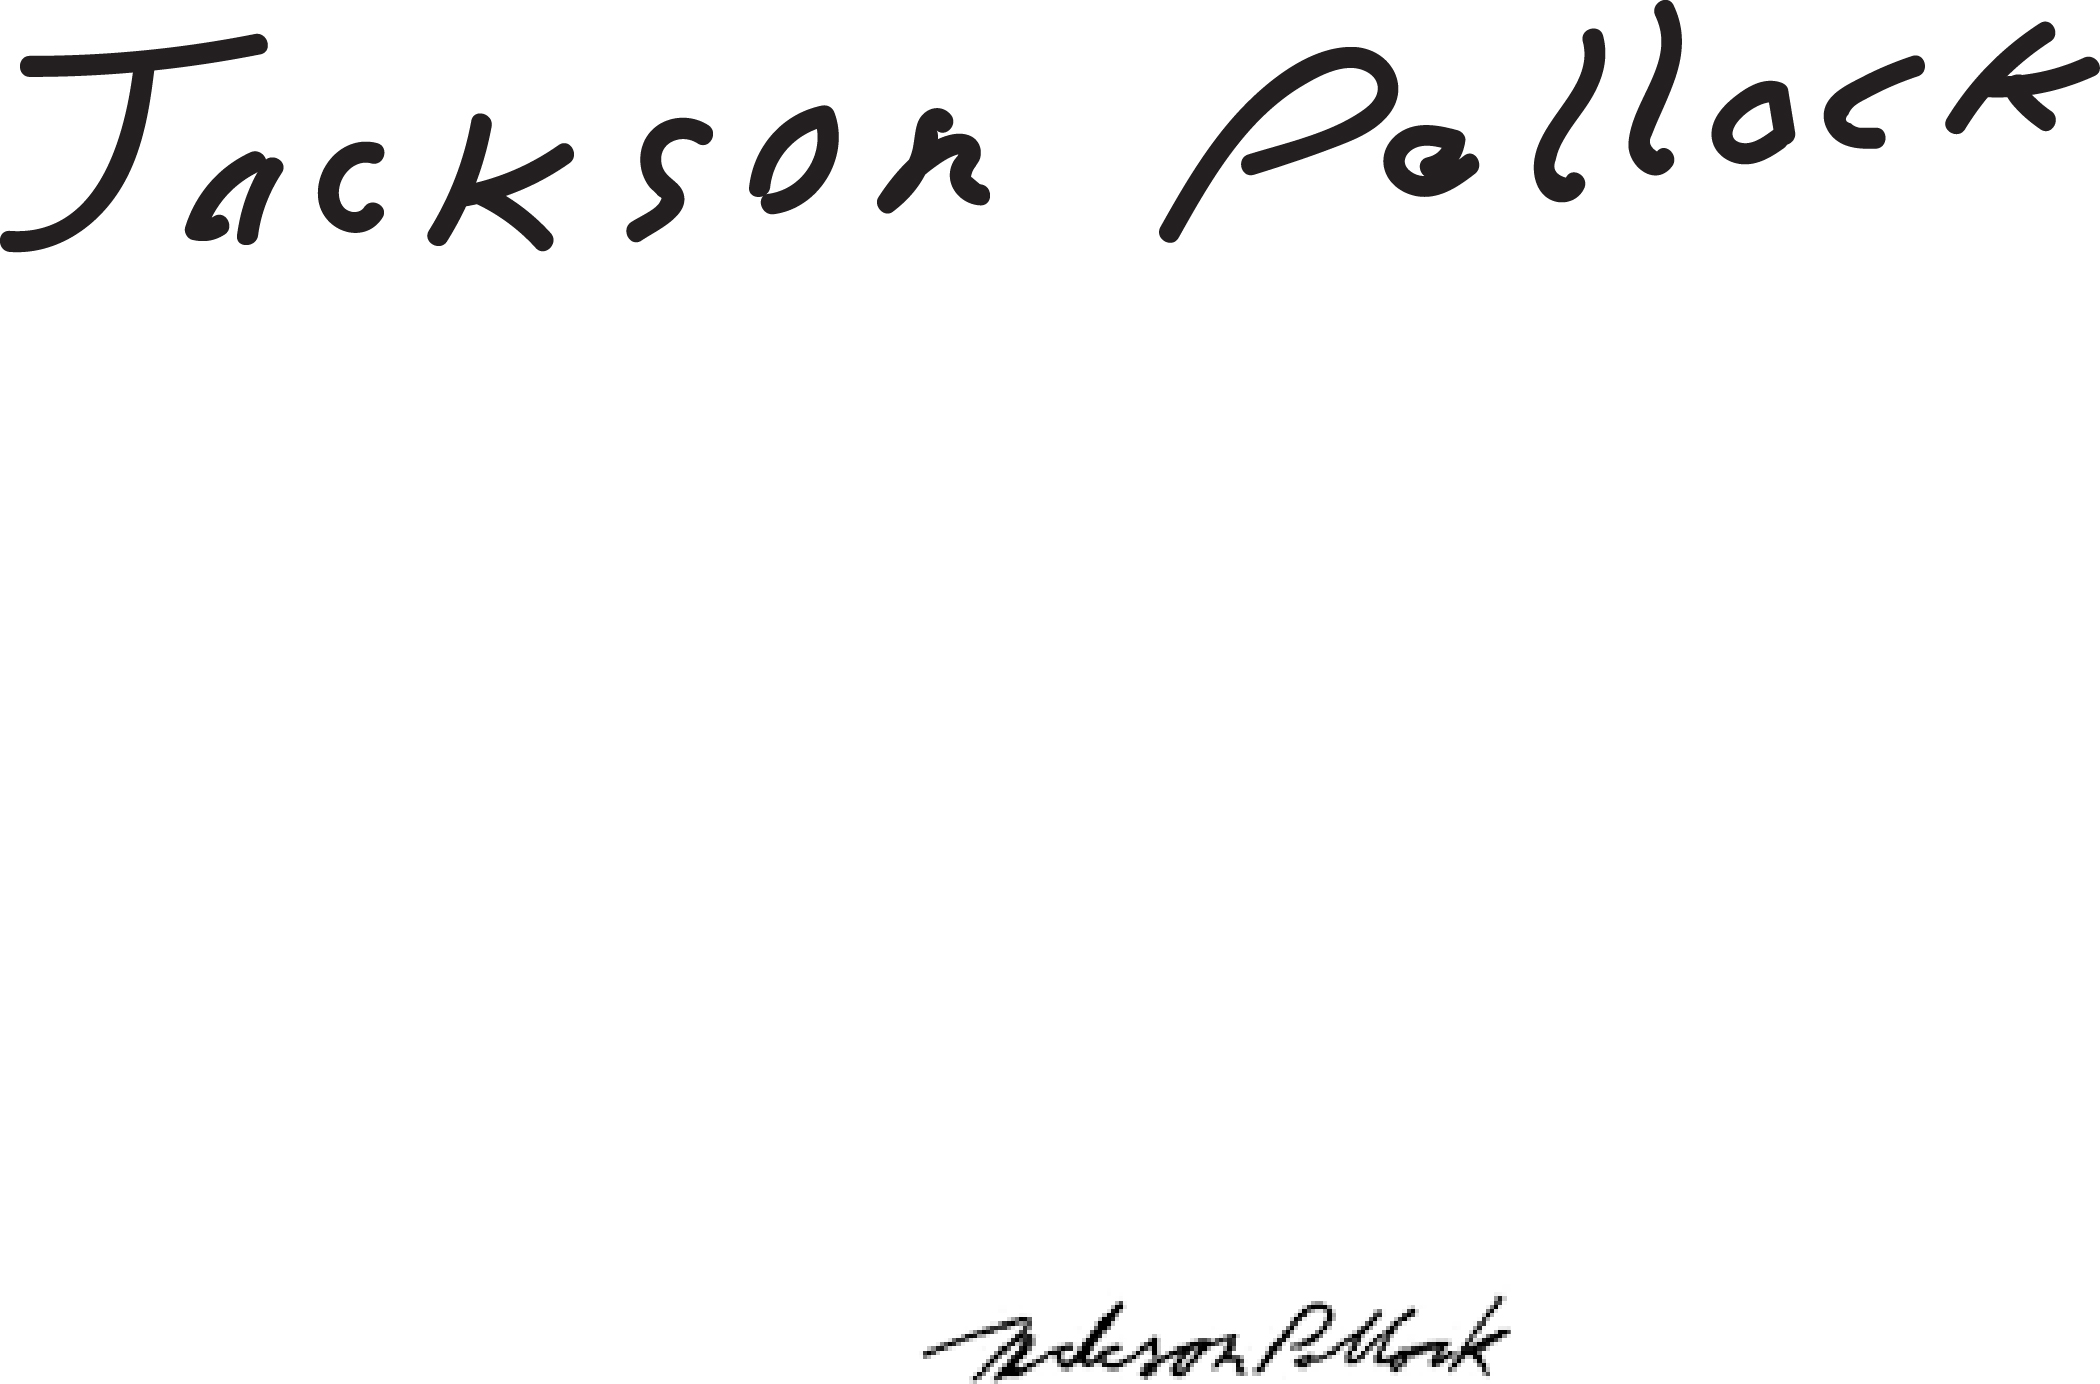 Jackson Pollock
Jackson Pollock